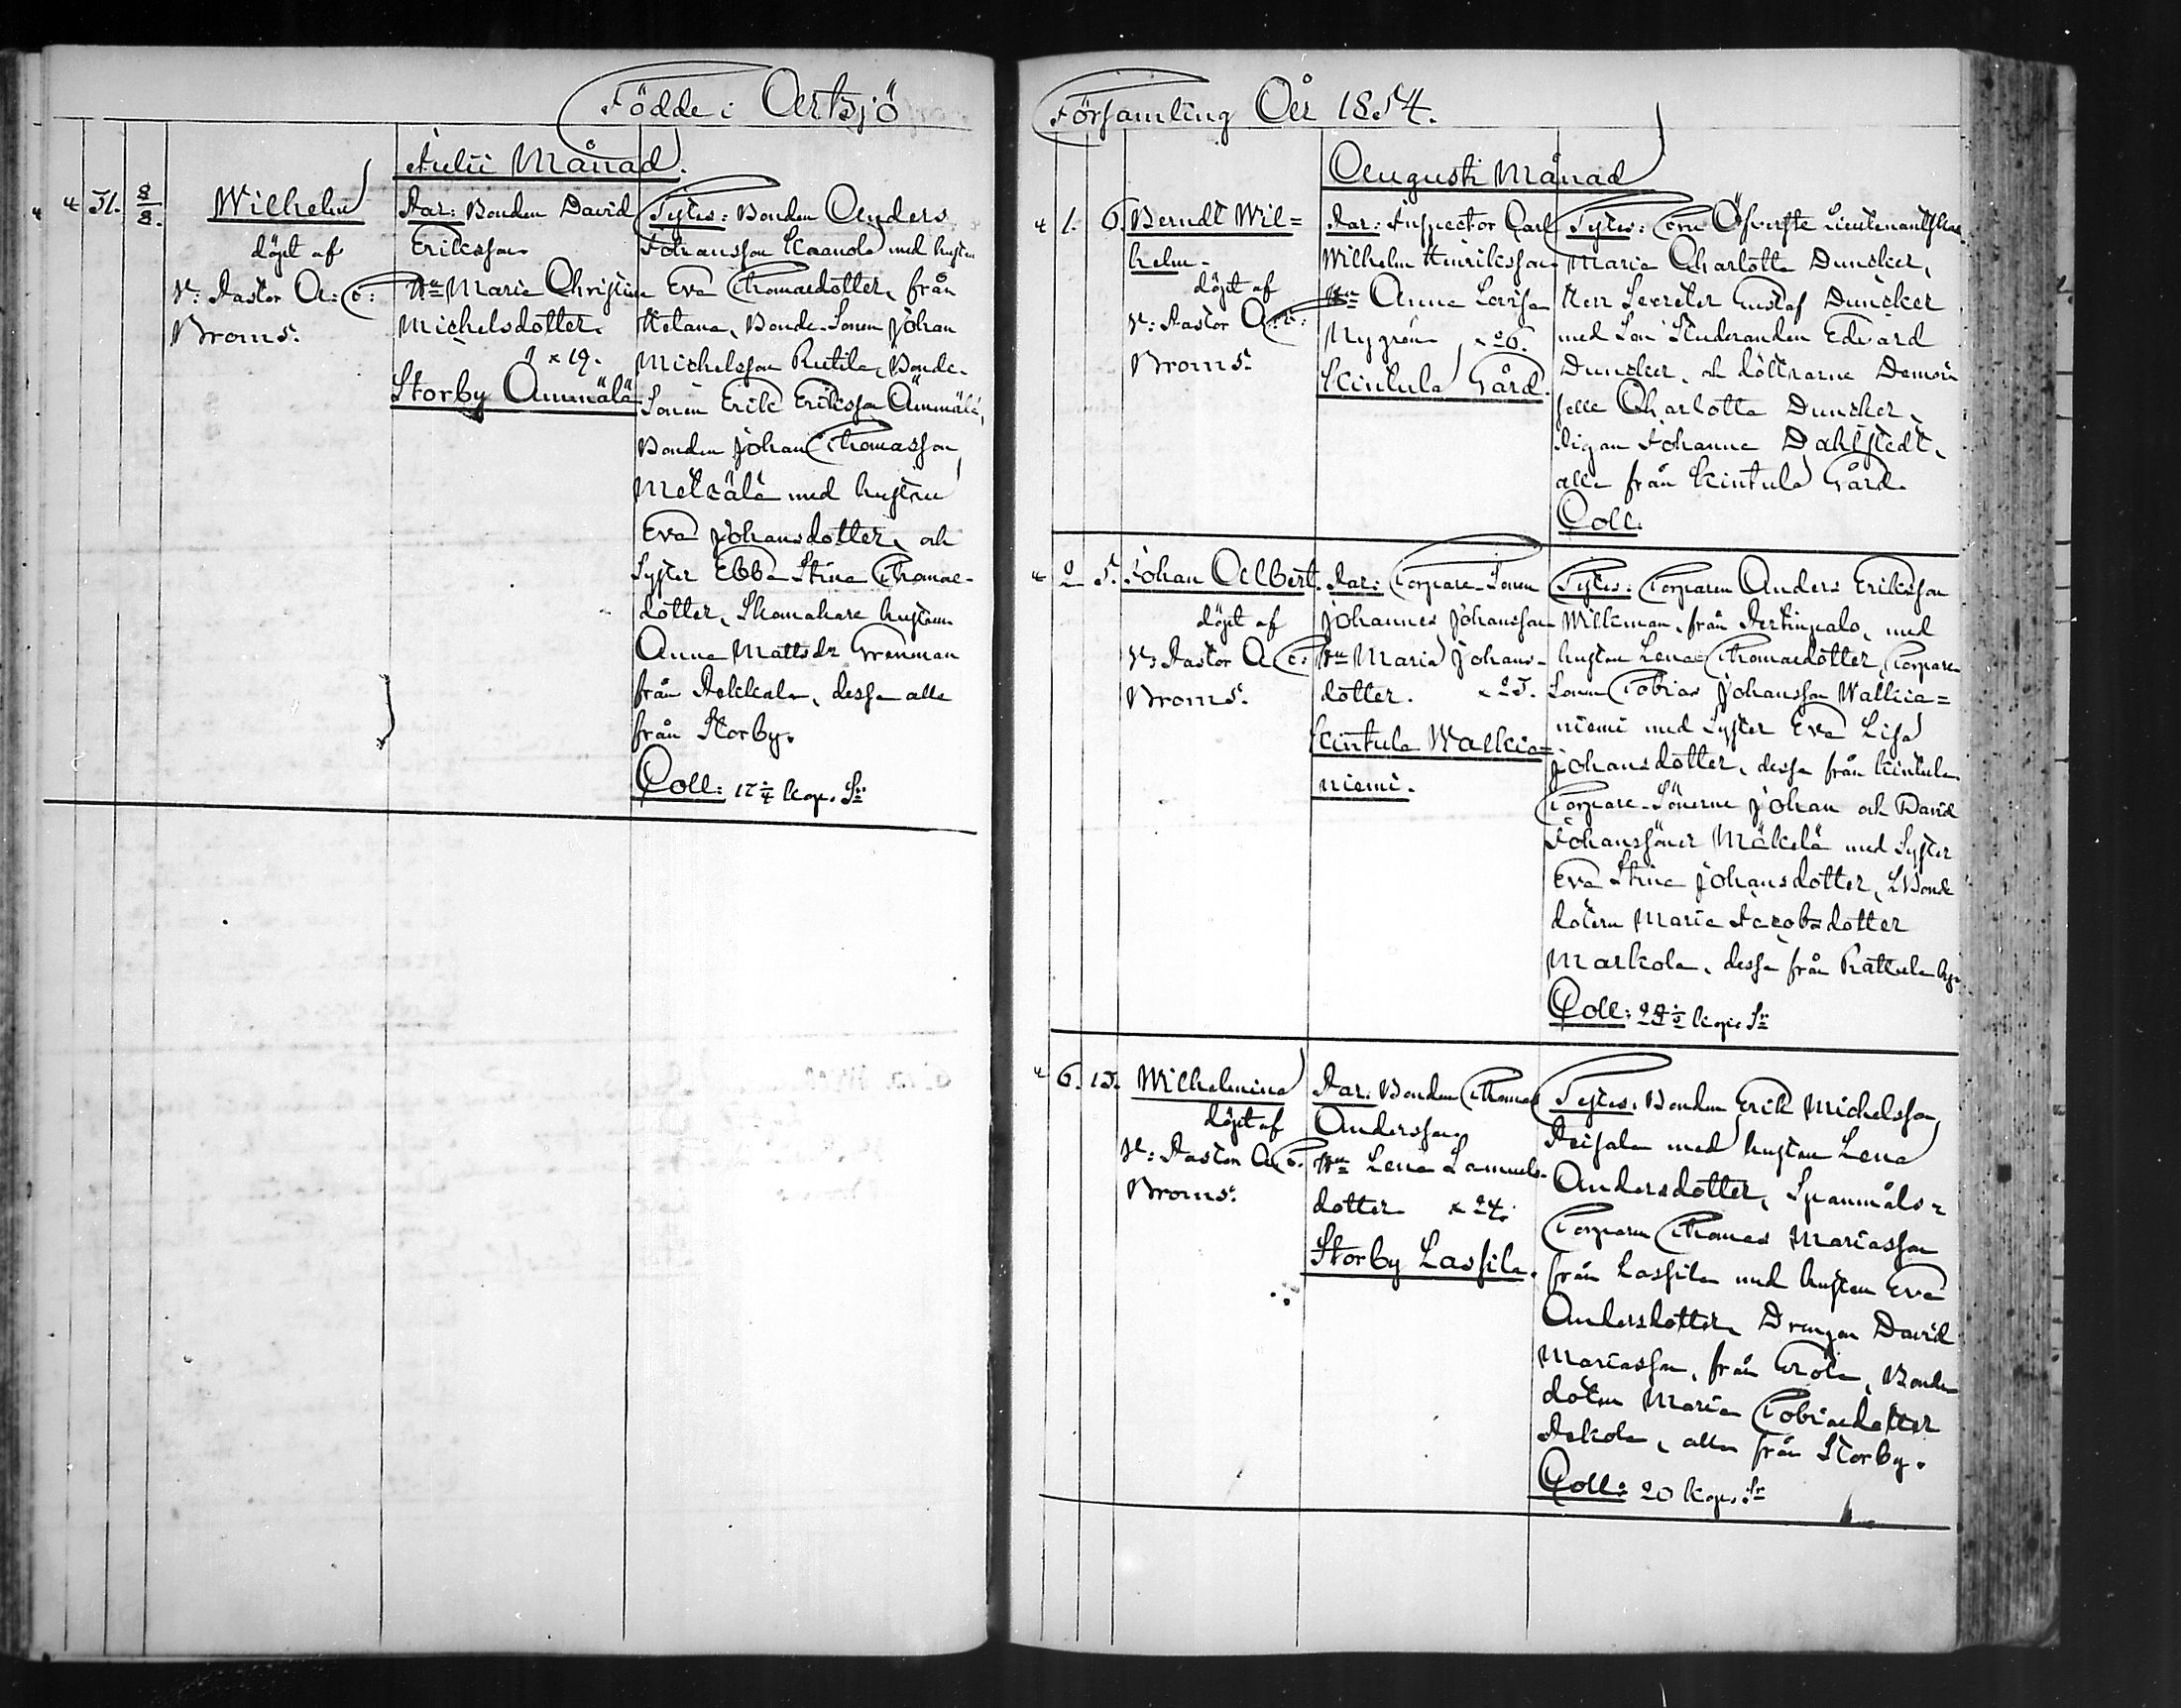 Födde i Artsjö
Julii Månad.
31. 8/8.
Wilhelm
döpt af
V: Pastor A: E:
Broms.
Par: Bonden David
Eriksson
Hu Maria Christina
Michelsdotter.
x 19.
Storby Ammälä
Testes: Bonden Anders
Johansson Kaanola med hustru
Eva Thomasdotter, från
Ketana, Bonde-Sonen Johan
Michelsson Rutila, Bonde-
Sonen Erik Eriksson Ammälä,
Bonden Johan Thomasson
Melkälä med hustru
Eva Johansdotter, och
Syster Ebba Stina Thomas-
dotter, Skomakare hustrun
Anna Mattsdr Grönman
från Pekkala, dessa alla
från Storby.
Coll: 17 1/4 kop. Sr
Församling År 1854.
Augusti Månad
1. 6.
Berndt Wil=
helm.
döpt af
V: Pastor A: E:
Broms.
Par: Inspector Carl
Wilhelm Henriksson
Hu Anna Lovisa
Nygrén x 26.
Kintula Gård.
Testes: Fru Öfverste Lieutenantskan
Maria Charlotta Duncker,
Herr Secreter Gustaf Duncker
med Son Studeranden Edvard
Duncker, och döttrarne Demoi
selle Charlotta Duncker,
Pigan Johanna Dahlstedt,
alla från Kintula Gård.
Coll.
2 5.
Johan Albert.
döpt af
V: Pastor A E:
Broms.
Par: Torpare-Sonen
Johannes Johansson
Hu Maria Johans-
dotter. x 23.
Kintula Walkia=
niemi.
Testes: Torparen Anders Eriksson
Willman, från Pertinpalo, med
hustru Lena Thomasdotter, Torpare
Sonen Tobias Johansson Walkia=
niemi med Syster Eva Lisa
Johansdotter, dessa från Kintula.
Torpare-Sönerne Johan och David
Johanssöner Mäkelä med Syster
Eva Stina Johansdotter, Bonde
dotern Maria Jacobsdotter
Markola, dessa från Rattula by.
Coll: kop. Sr
6. 13.
Wilhelmina
döpt af
V: Pastor A E:
Broms.
Par: Bonden Thomas
Andersson
Hu Lena Samuels-
dotter x 24.
Storby Lassila.
Testes: Bonden Erik Michelsson
Peisala med hustru Lena
Andersdotter, Spanmåls=
Torparen Thomas Mariasson
från Lassila med hustru Eva
Andersdotter, Drengen David
Mariasson, från Erola, Bonde
dotern Maria Tobiasdotter
Pekola, alla från Storby.
Coll: 20 kop. Sr